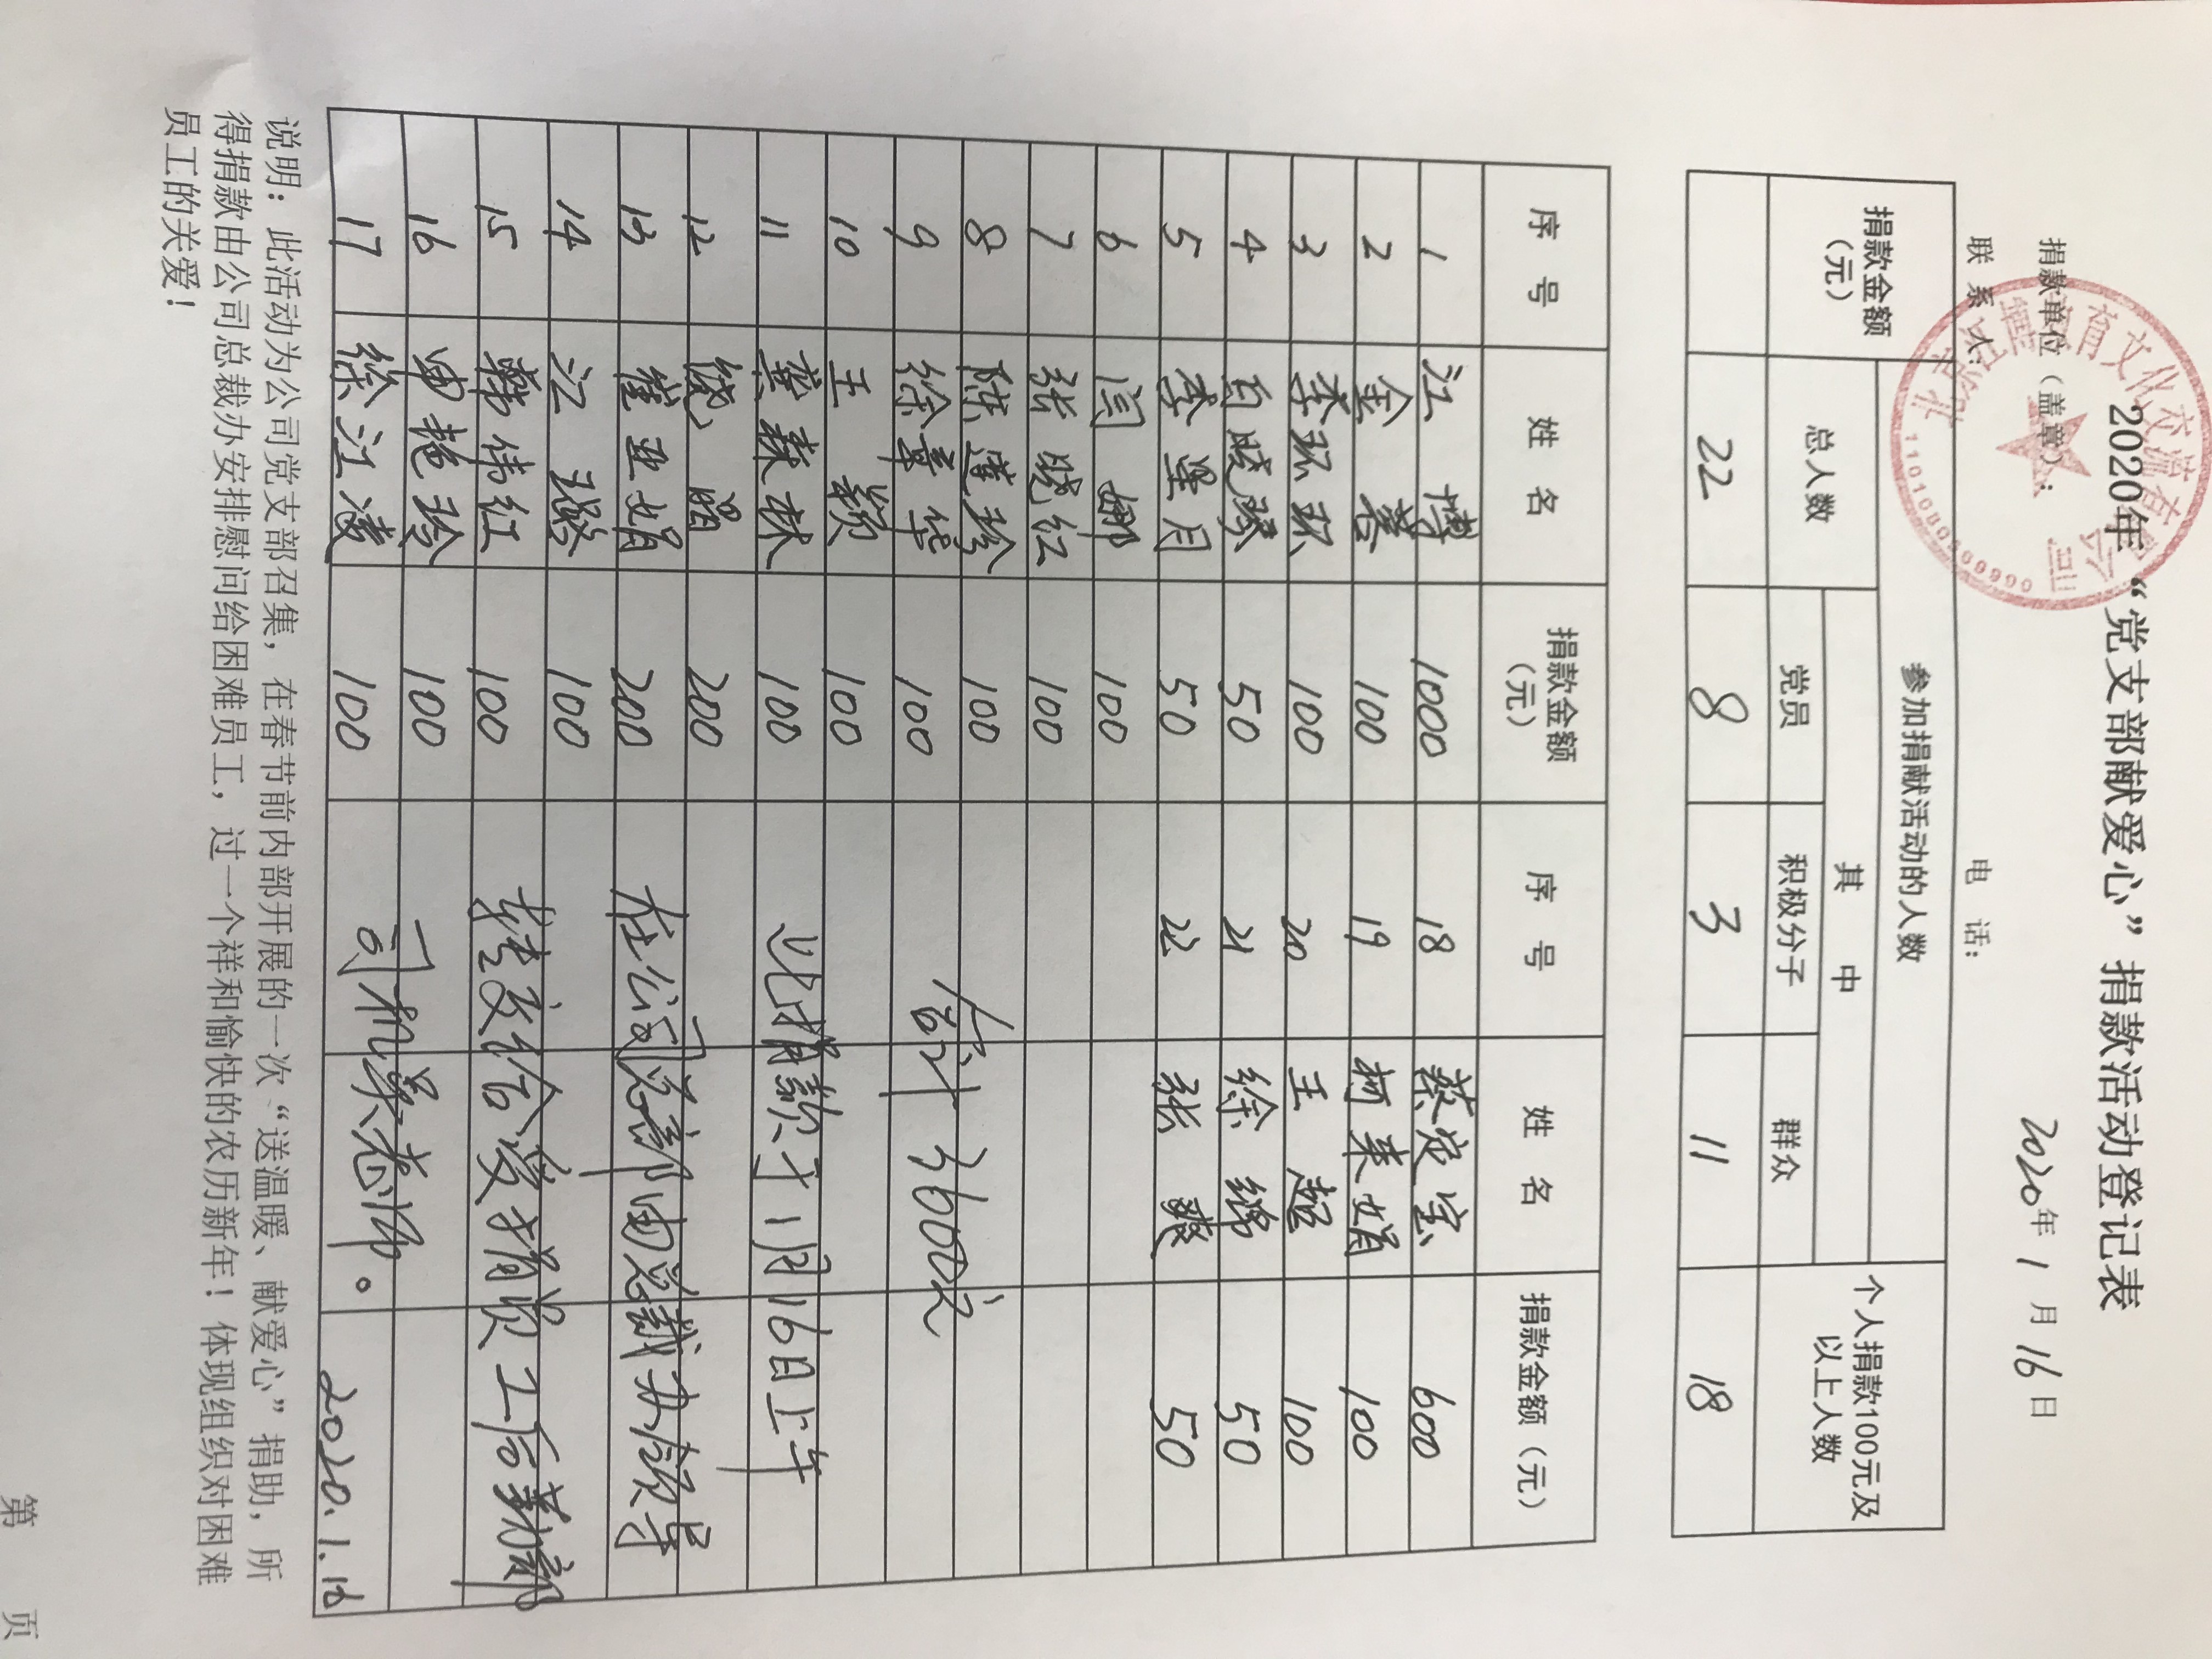 2020年“党支部献爱心”捐款活动登记表
捐款单位（盖章）： 2020年1月16日
联系人： 电话：
捐款金额（元） 参加捐献活动的人数 个人捐款100元及以上人数
总人数 其中
党员 积极分子 群众
22 8 3 11 18
序号 姓名 捐款金额（元） 序号 姓名 捐款金额（元）
1 江博 1000 18 蔡定宝 600
2 金蓉 100 19 柯美娟 100
3 李环环 100 20 王超 100
4 白晓琴 50 21 徐锦 50
5 李星月 50 22 张爽 50
6 闫娜 100
7 张晓红 100
8 陈莲珍 100 合计3600元
9 徐草华 100
10 王颖 100
11 龚森林 100 此捐款于1月16日上午
12 饶晶 200
13 崔亚娟 200 在公司总部由总裁办领导
14 江璐 100
15 韩伟红 100 转交给受捐员工后勤部
16 申艳玲 100
17 徐江凌 100 司机梁志沛。 2020.1.16
说明：此活动为公司党支部召集，在春节前内部开展的一次“送温暖、献爱心”捐助，所
得捐款由公司总裁办安排慰问给困难员工，过一个祥和愉快的农历新年！体现组织对困难
员工的关爱！
第 页